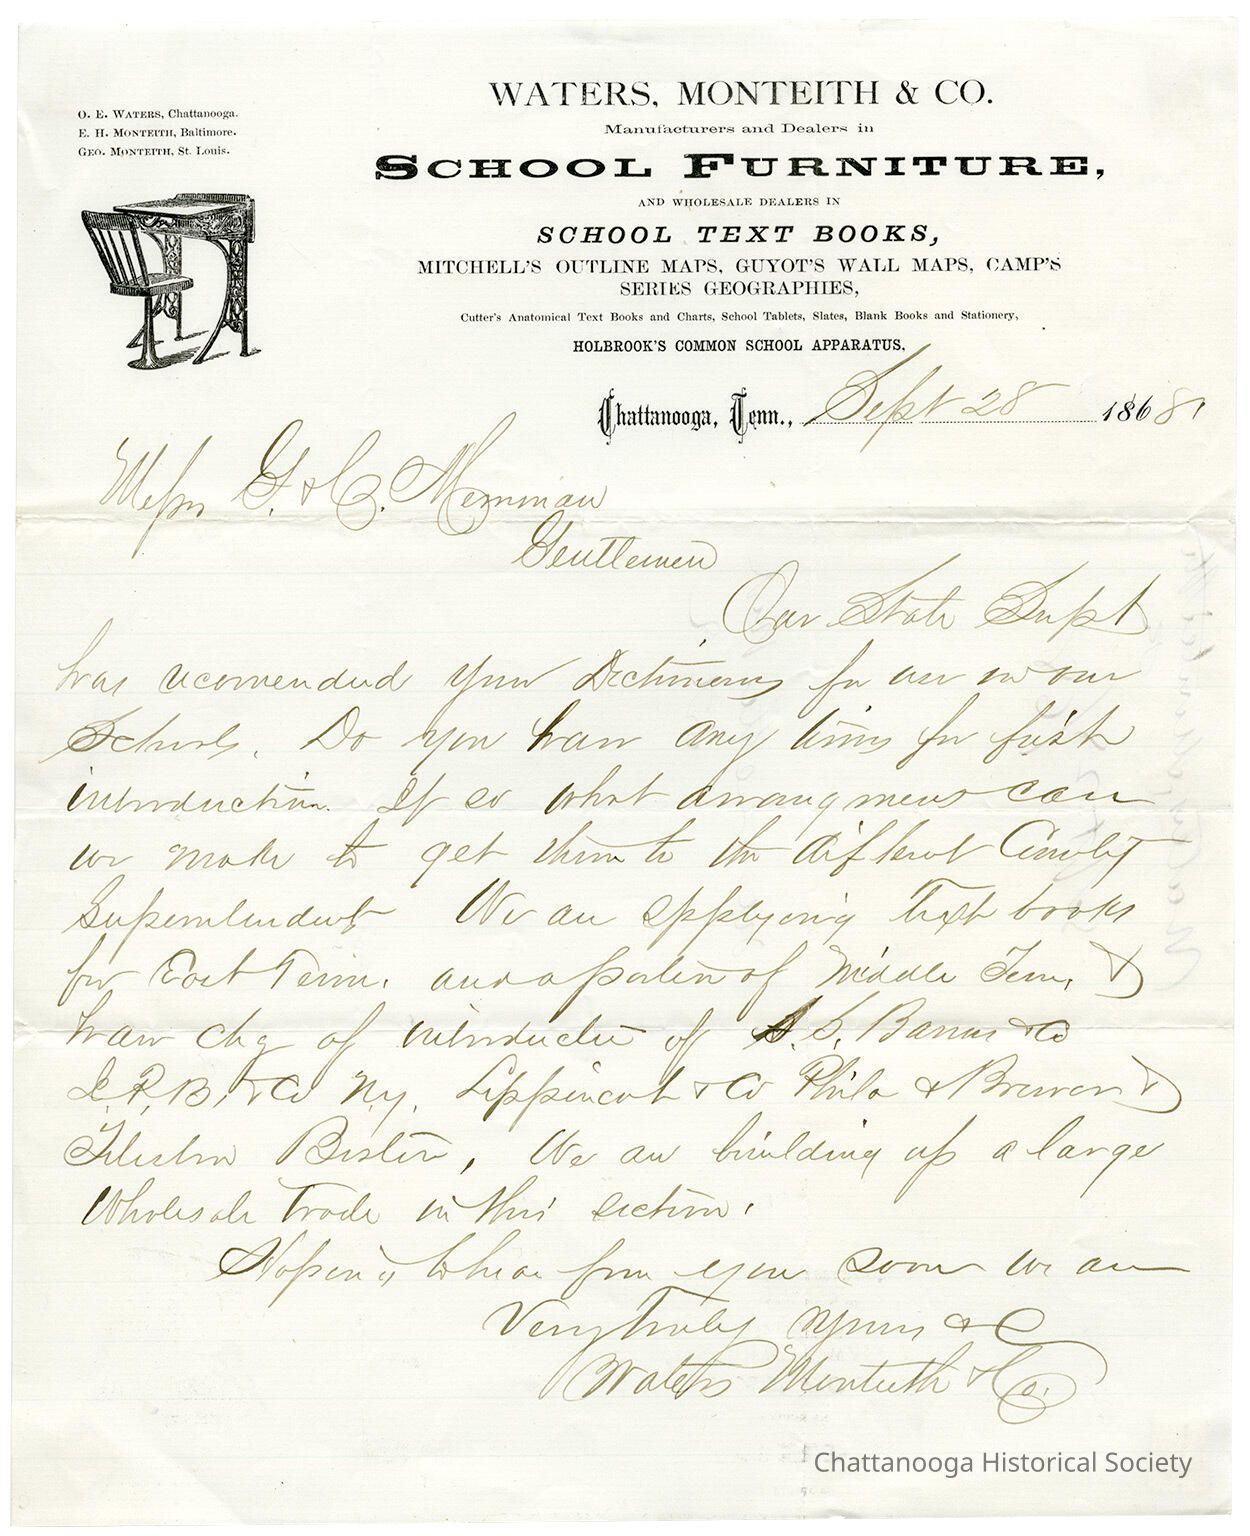 O. E. WATERS, Chattanooga.
E. H. MONTEITH, Baltimore.
GEO. MONTEITH, St. Louis.
WATERS, MONTEITH & CO.
Manufacturers and Dealers in
SCHOOL FURNITURE,
AND WHOLESALE DEALERS IN
SCHOOL TEXT BOOKS,
MITCHELL'S OUTLINE MAPS, GUYOT'S WALL MAPS, CAMP'S
SERIES GEOGRAPHIES,
Cutter's Anatomical Text Books and Charts, School Tablets, Slates, Blank Books and Stationery,
HOLBROOK'S COMMON SCHOOL APPARATUS.
Chattanooga, Tenn., Sept 28 1868
Messrs G. & C. Merriman
Gentlemen
Our State Supt
has recomended your Dictionerys for use in our
Schools. Do you have any terms for first
introduction. If so what arrangmens can
we make to get them to the different County
Superentendent We are supplying Text books
for East Tenn. and a portion of Middle Tenn, &
have chg of introduction of A. S. Barnes & Co
I. P. B. & Co N.y. Lippincott & Co Phila & Brewer &
Tileston Boston, We are building up a large
Wholesale Trade in this section.
Hoping to hear from you soon we are
Very Truly Yours &C
Waters Monteith & Co.
Chattanooga Historical Society